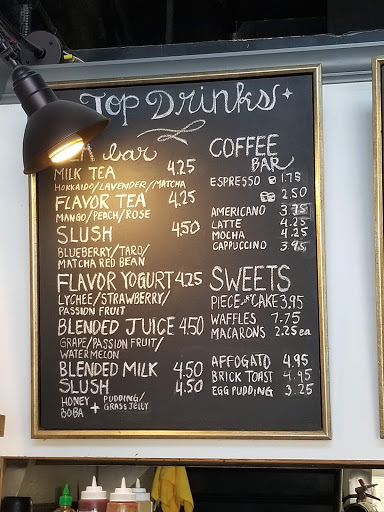 Top Drinks
bar
MILK TEA 4.25
HOKKAIDO/LAVENDER/MATCHA
FLAVOR TEA 4.25
MANGO/PEACH/ROSE
SLUSH 4.50
BLUEBERRY/TARO/
MATCHA RED BEAN
FLAVOR YOGURT 4.25
LYCHEE/STRAWBERRY/
PASSION FRUIT
BLENDED JUICE 4.50
GRAPE/PASSION FRUIT/
WATERMELON
BLENDED MILK 4.50
SLUSH 4.50
HONEY BOBA + PUDDING/
GRASS JELLY
COFFEE
BAR
ESPRESSO 1.75
2.50
AMERICANO 3.75
LATTE 4.25
MOCHA 4.25
CAPPUCCINO 3.95
SWEETS
PIECE OF CAKE 3.95
WAFFLES 7.75
MACARONS 2.25 ea
AFFOGATO 4.95
BRICK TOAST 4.95
EGG PUDDING 3.25